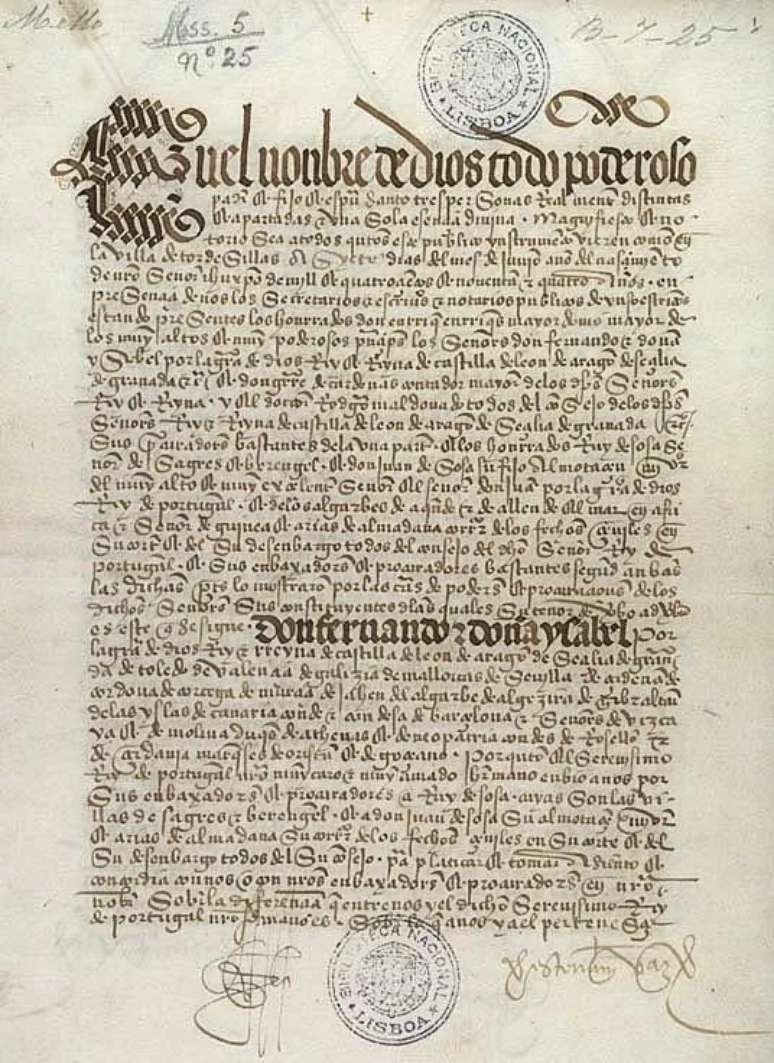 Mello
Mss. 5
nº 25
B-7-25
BIBLIOTECA NACIONAL
LISBOA
En el nonbre de dios todo poderoso
padre & fijo & espu santo tres personas realmente distintas
& apartadas & una sola esençia divina. Magnifiesto & no
torio sea a todos quantos este publico ynstrumento vieren como en
la villa de tordesillas A syete dias del mes de junio año del nasçimiento
de nro Señor ihu xpo de mill & quatroçientos & noventa & quatro años. en
presençia de nos los Secretarios & escrivanos & notarios publicos de yuso escriptos
estando presentes los honrrados don enrrique enrriques mayordomo mayor de
los muy altos & muy poderosos prinçipes los Señores don fernando & doña
ysabel por la graçia de dios Rey & Reyna de castilla de leon de aragon de seçilia
de granada & & don gutierre de cardenas contador mayor delos dichos Señores
Rey & Reyna. y el doctor Rodrigo maldonado todos del consejo delos dichos
Señores Rey & Reyna de castilla de leon de aragon de Seçilia de granada
Sus procuradores bastantes dela una parte. & los honrrados Ruy de sosa Se
ñor de Sagres & berengel. & don juan de Sosa su fijo Almotaçen mayor
del muy alto & muy exçelente Señor el señor don juan por la graçia de dios
Rey de portugal. & delos algarbes de aquende & de allende el mar en afri
ca & Señor de guinea & arias de almadana corregidor de los fechos çeviles en
Su corte & del Su desenbargo todos del consejo del dicho Señor Rey de
portugal. & Sus enbaxadores & procuradores bastantes segund anbas
las dichas partes lo mostraron por las cartas de poderes & procuraçiones de los
dichos Señores Sus constituyentes delas quales Su tenor de verbo ad verbo
es este que se sigue. Don fernando & doña ysabel por
la graçia de dios Rey & rreyna de castilla de leon de aragon de Seçilia de grana
da de toledo de valençia de galizia de mallorcas de Sevilla de çerdeña de
cordova de corçega de murçia de jahen del algarbe de algezira de gibraltar
de las yslas de canaria conde & condesa de barçelona & Señores de vizca
ya & de molina duques de athenas & de neopatria condes de Rosellon &
de çerdania marqueses de oristan & de goçeano. Por quanto el Serenisimo
Rey de portugal nro muy caro & muy amado hermano enbio a nos por
Sus enbaxadores & procuradores a Ruy de sosa cuyas Son las vi
llas de sagres & berengel. & a don juan de sosa Su almotaçen mayor
& arias de almadana Su corregidor de los fechos çeviles en Su corte & del
Su desenbargo todos del Su consejo. para platicar & tomar asiento &
concordia con nos o con nros enbaxadores & procuradores en nro
nonbre Sobre la diferençia que entre nos y el dicho Serenisimo Rey
de portugal nro hermano es. Sobre lo que a nos y a el perteneçe
BIBLIOTECA NACIONAL
LISBOA